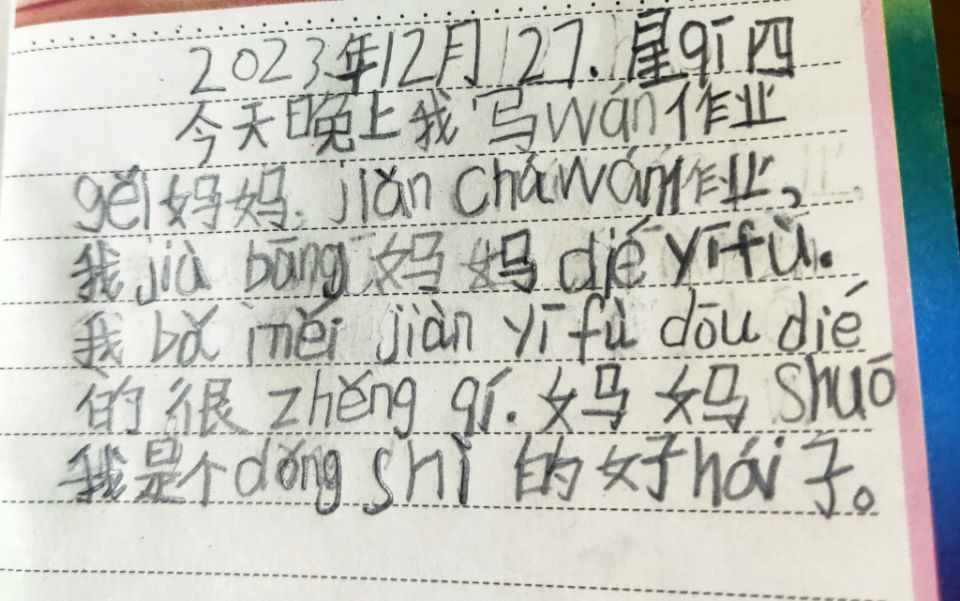 2023年12月27.星qī四
今天晚上我写wán作业
gěi妈妈.jiǎn cháwán作业,
我jiù bāng妈妈dié yīfù.
我bǎ měi jiàn yī fù dōu dié
的很zhěng qí.妈妈shuō
我是个dǒng shì的好hái子。